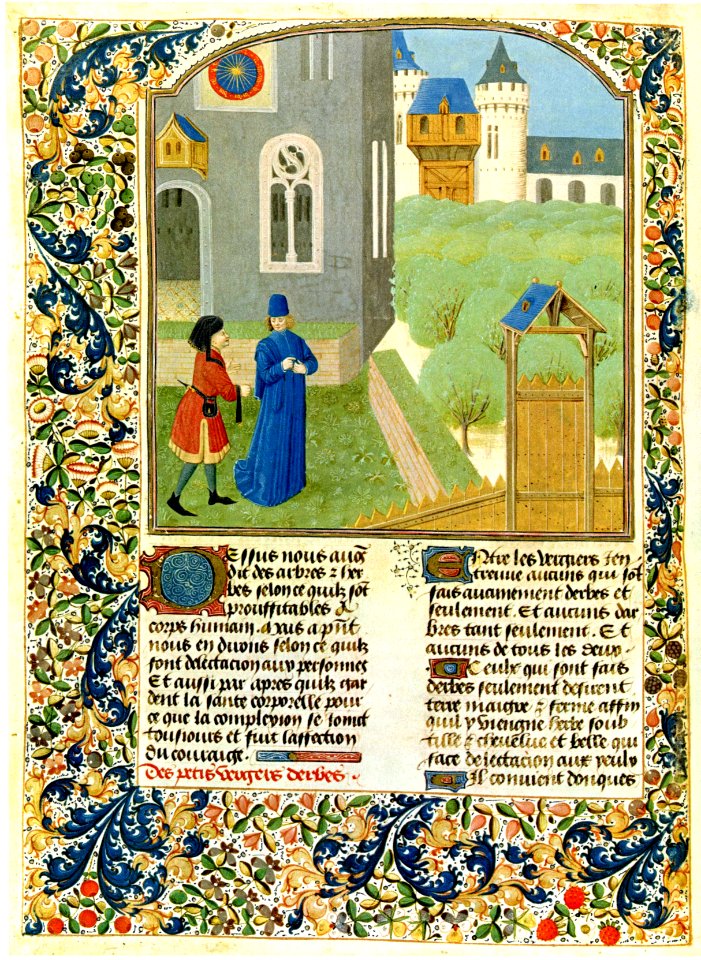 Dessus nous auōs
dit des arbres z her
bes selon ce quilz sōt
prouffitables a
corps humain. Mais a pñt
nous en dirons selon ce quilz
font delectacion aux personnes
Et aussi par apres quilz gar
dent la sante corporelle pour
ce que la complexion se joinct
tousiours et suit laffection
du couraige.
Des petis vergiers derbes
Entre les vergiers len
treuue aucuns qui sōt
fais aucunement derbes et
seulement. Et aucuns dar
bres tant seulement. Et
aucuns de tous les deux.
Ceulx qui sont fais
derbes seulement desirent
terre maigre z ferme affin
quil y viengne herbe soub
tille z cheuelue et belle qui
face delectacion aux yeulx
Il conuient donques